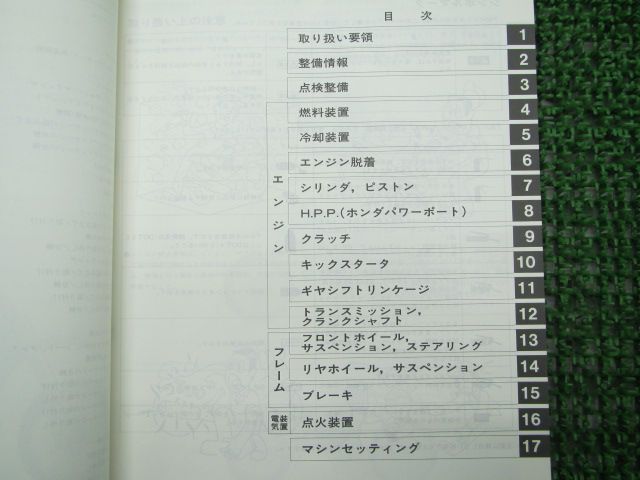 目 次
取り扱い要領 1
整備情報 2
点検整備 3
エンジン
燃料装置 4
冷却装置 5
エンジン脱着 6
シリンダ，ピストン 7
H.P.P.(ホンダパワーポート) 8
クラッチ 9
キックスタータ 10
ギヤシフトリンケージ 11
トランスミッション，
クランクシャフト 12
フレーム
フロントホイール，
サスペンション，ステアリング 13
リヤホイール，サスペンション 14
ブレーキ 15
電装
気置
点火装置 16
マシンセッティング 17